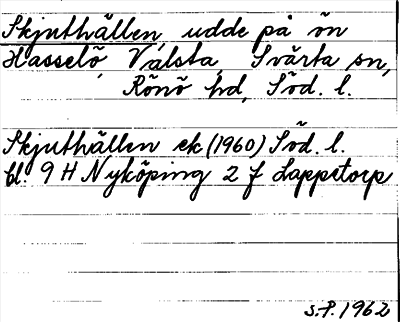 Skjuthällen, udde på ön
Hasselö, Valsta, Svärta sn,
Rönö hd, Söd. l.
Skjuthällen ek (1960) Söd. l.
bl. 9 H Nyköping 2 f Lappetorp
S.P. 1962